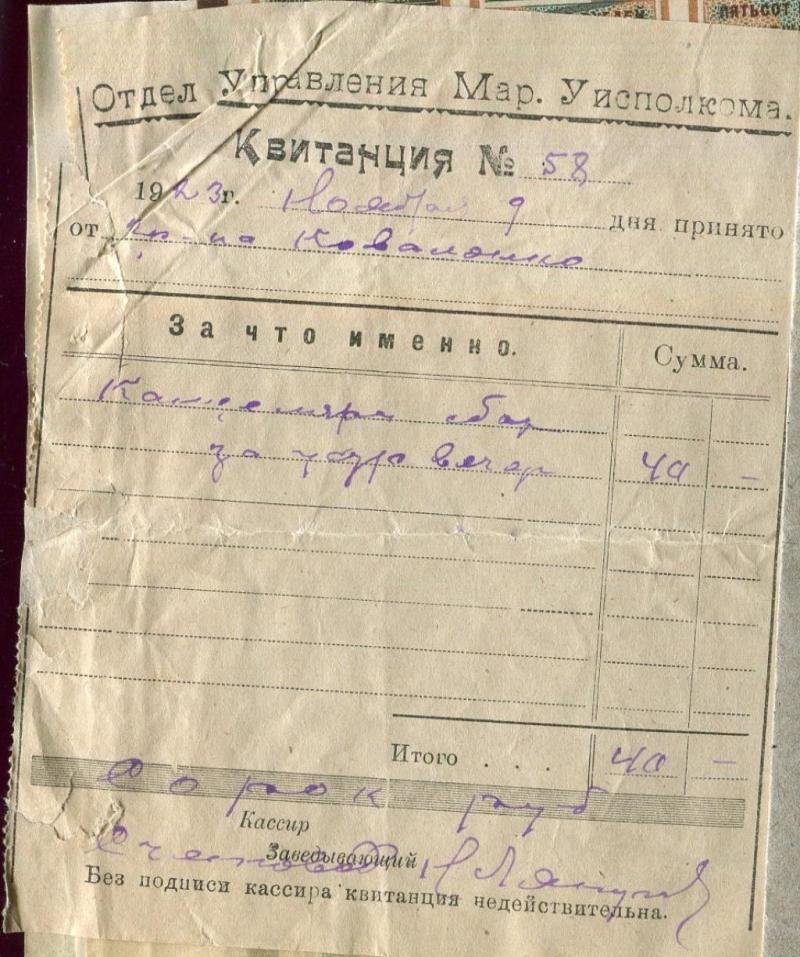 ПЯТЬСОТ
Отдел Управления Мар. Уисполкома.
Квитанция № 58
1923 г. Ноября 9 дня принято
от гр-на Коваленко
За что именно. Сумма.
Канцелярск сбор
за вечер 40 —
Итого . . . 40 —
Сорок руб
Кассир
Заведывающий
Без подписи кассира квитанция недействительна.